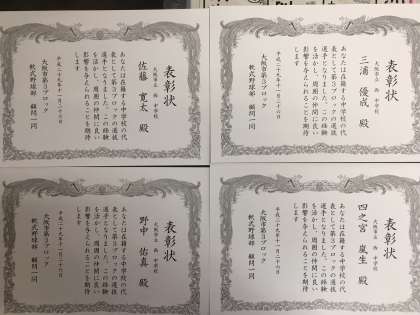 表彰状
大阪市立 西 中学校
三浦 優成 殿
あなたは在籍する中学校の代
表として第3ブロックの選抜
選手となりました。この経験
を活かし、周囲の仲間に良い
影響を与えられることを期待
します
平成二十九年十一月二十六日
大阪市第3ブロック
軟式野球部 顧問一同
表彰状
大阪市立 西 中学校
佐藤 寛太 殿
あなたは在籍する中学校の代
表として第3ブロックの選抜
選手となりました。この経験
を活かし、周囲の仲間に良い
影響を与えられることを期待
します
平成二十九年十一月二十六日
大阪市第3ブロック
軟式野球部 顧問一同
表彰状
大阪市立 西 中学校
四之宮 嵐生 殿
あなたは在籍する中学校の代
表として第3ブロックの選抜
選手となりました。この経験
を活かし、周囲の仲間に良い
影響を与えられることを期待
します
平成二十九年十一月二十六日
大阪市第3ブロック
軟式野球部 顧問一同
表彰状
大阪市立 西 中学校
野中 佑真 殿
あなたは在籍する中学校の代
表として第3ブロックの選抜
選手となりました。この経験
を活かし、周囲の仲間に良い
影響を与えられることを期待
します
平成二十九年十一月二十六日
大阪市第3ブロック
軟式野球部 顧問一同